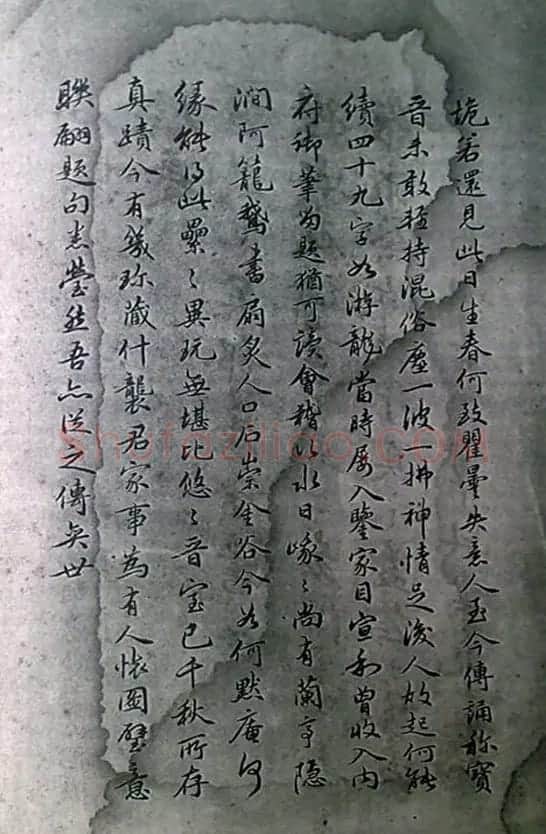 诡若還見此日生春何致瞿曇失意人至今傳誦称寶
音未敢輕持混俗塵一波一拂神情足後人放起何能
續四十九字如游龍當時屡入鑒家目宣和曾收入内
府御筆为题猶可讀會稽山水日嵚〻尚有蘭亭隐
澗阿籠鵝書扇炙人口石崇金谷今如何默庵何
缘能得此纍〻異玩無堪比悠〻晋宝已千秋所存
真蹟今有幾珍藏什襲君家事為有人懷國璧意
聯翩题句悉瑩然吾亦従之傳矣世
shufaziliao.com